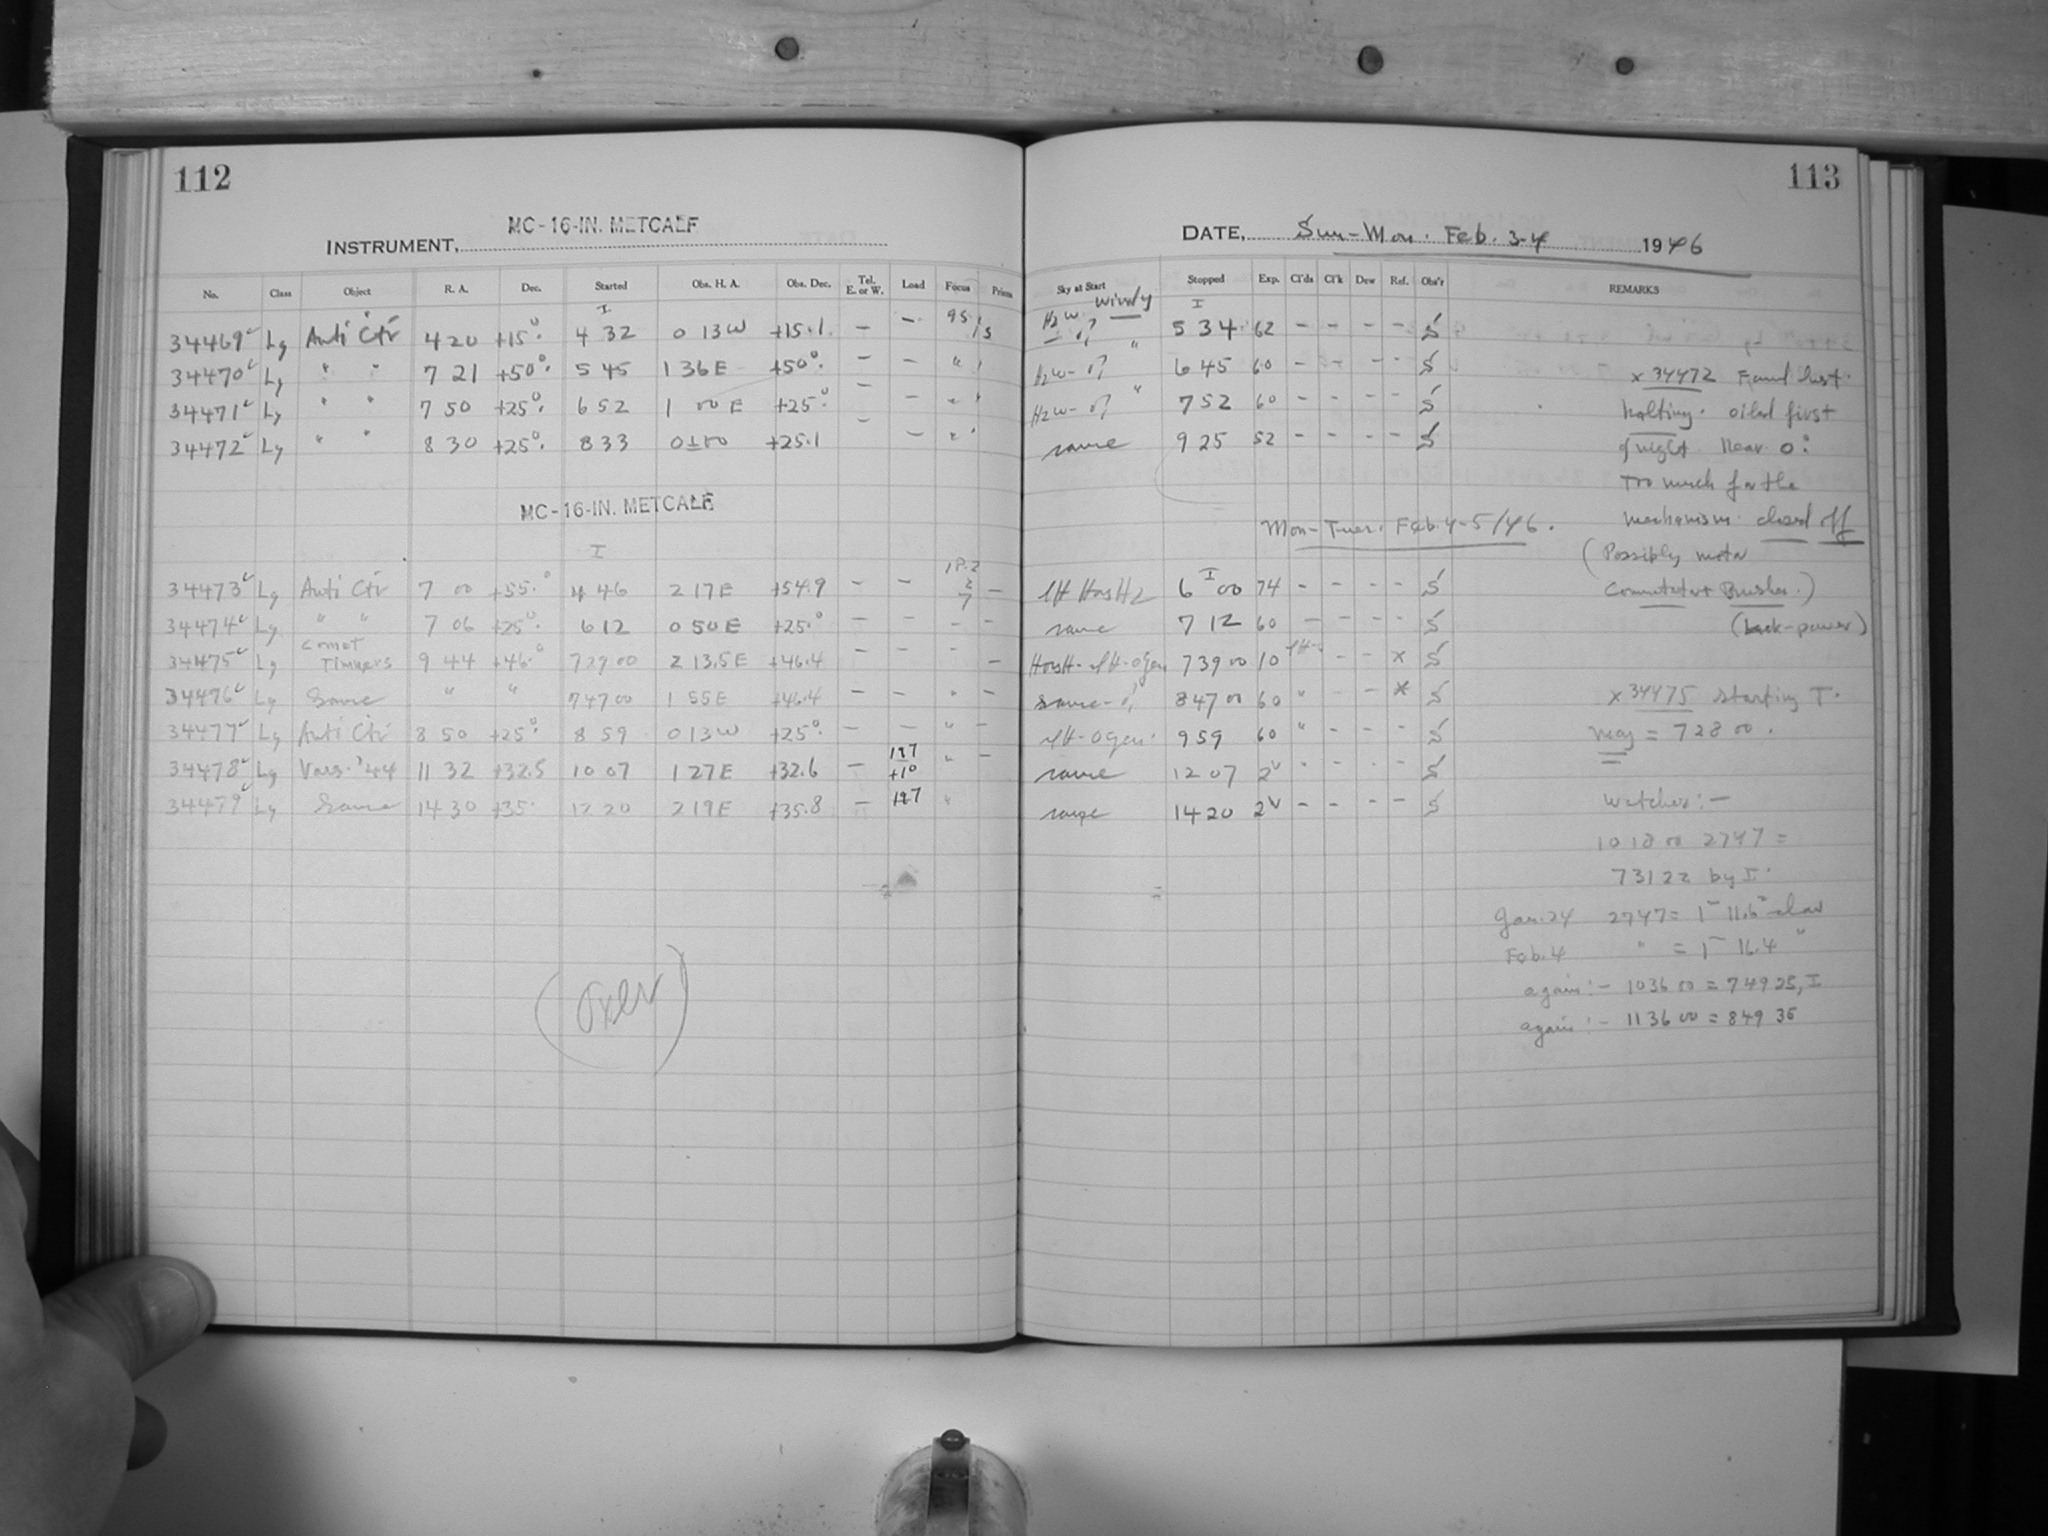 112
MC-16-IN. METCALF
INSTRUMENT,
No. Class Object R. A. Dec. Started Obs. H. A. Obs. Dec. Tel. E. or W. Load Focus Prism
I
34469 Lg Anti Ctr 4 20 +15° 4 32 0 13W +15.1 - -
34470 Lg " " 7 21 +50° 5 45 1 36E +50° - - "
34471 Lg " " 7 50 +25° 6 52 1 00E +25° - - "
34472 Lg " " 8 30 +25° 8 33 0±00 +25.1 - - "
MC-16-IN. METCALF
I
34473 Lg Anti Ctr 7 00 +55° 4 46 2 17E +54.9 - - -
34474 Lg " " 7 06 +25° 6 12 0 50E +25° - - - -
34475 Lg Comet Timmers 9 44 +46° 7 29 00 2 13.5E +46.4 - - -
34476 Lg Same " " 7 47 00 1 55E +46.4 - - " -
34477 Lg Anti Ctr 8 50 +25° 8 59 0 13W +25° - - " -
34478 Lg Vars. '44 11 32 +32.5 10 07 1 27E +32.6 - +10 " -
34479 Lg Same 14 30 +35 12 20 2 19E +35.8 - "
(Over)
113
DATE, Sun-Mon. Feb. 3-4 1946
Sky at Start Stopped Exp. Cl'ds Cl'k Dew Ref. Obs'r REMARKS
windy I
5 34 62 - - - - S
6 45 60 - - - - S
7 52 60 - - - - S
same 9 25 52 - - - - S
x 34472 Found just
halting. oiled first
of night. Near 0°
Too much for the
mechanism. closed off
(Possibly motor
Commutator Brushes.)
(Lack-power)
Mon-Tues. Feb. 4-5/46.
I
6 00 74 - - - - S
same 7 12 60 - - - - S
7 39 00 10 - - x S
same 8 47 00 60 " - - x S
9 59 60 " - - - S
same 12 07 - - - S
same 14 20 - - - - S
x 34475 starting T.
may = 7 28 00.
Watches:-
10 18 00 2747 =
7 31 22 by I.
Jan. 24 2747 = 1m 11.6s slow
Feb. 4 " = 1m 16.4 "
again:- 10 36 00 = 7 49 25, I
again:- 11 36 00 = 8 49 35